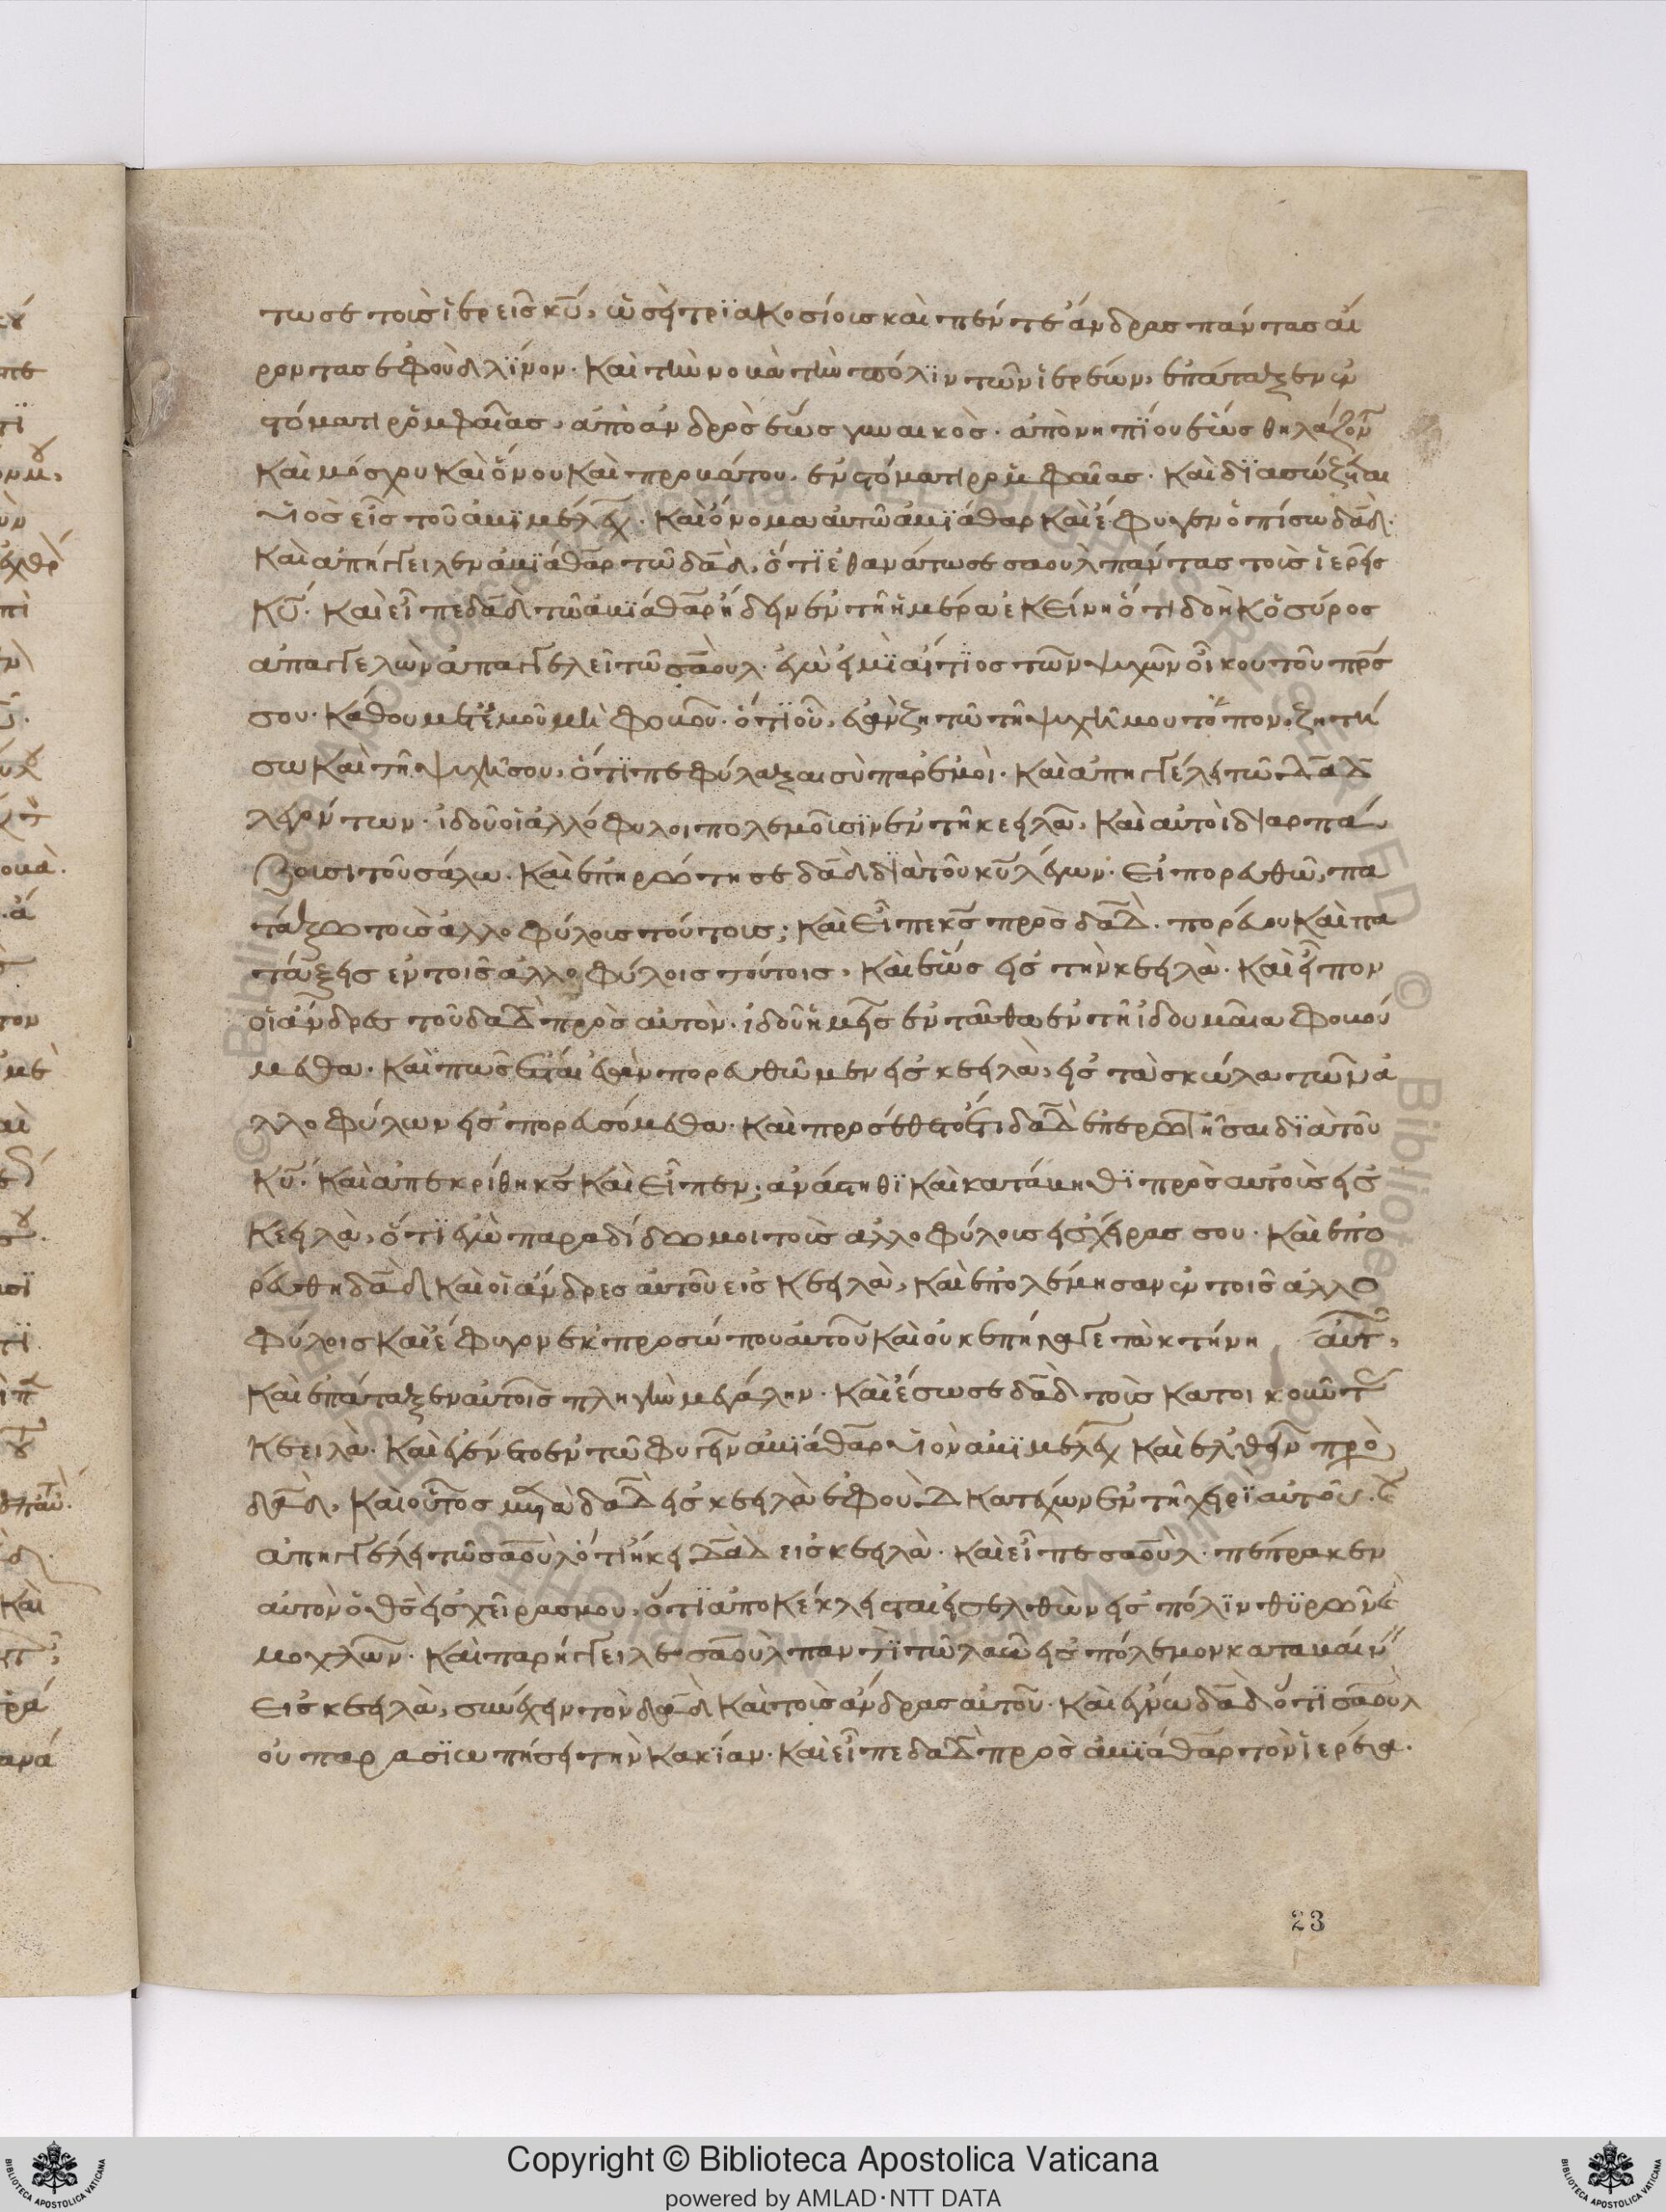 τωσε τοὺσ ἱερεῖσ κ̅υ̅, ὡσεὶ τριακοσίουσ καὶ πέντε ἄνδρασ πάντασ αἴ
ροντασ ἐφοὺδ λϊνον. καὶ τὴν νοβὰ τὴν πόλϊν τῶν ἱερέων, ἐπάταξεν ἐν
στόματι ῥομφαίασ, ἀπὸ ἀνδρὸσ ἕωσ γυναικὸσ. ἀπὸ νηπΐου ἕωσ θηλάζον
καὶ μόσχου καὶ ὄνου καὶ προβάτου, ἐν στόματι ρομφαίασ. καὶ δϊασώζεται
υἱὸσ εἷσ τοῦ ἀβϊμέλεχ. καὶ ὄνομα αὐτῶ ἀβϊάθαρ καὶ ἔφυγεν ὀπίσω δα̅δ.
καὶ ἀπήγγειλεν ἀβϊάθαρ τῶ δα̅δ, ὅτϊ ἐθανάτωσε σαοὺλ πάντασ τοὺσ ἱερεῖσ
κ̅υ̅. καὶ εἶπε δα̅δ τῶ ἀβϊάθαρ ἤδειν ἐν τῆ ἡμέρα ἐκείνη ὅτι δοὴκ ὁ σύροσ
ἀπαγγελὼν ἀπαγγελεῖ τῶ σαουλ. ἐγὼ εἰμϊ αἴτϊοσ τῶν ψυχῶν οἴκου τοῦ π̅ρ̅σ
σου. κάθου μετ ἐμοῦ μὴ φοβοῦ. ὅτϊ οὗ, ἐὰν ζητῶ τῆ ψυχῆ μου τόπον, ζητή
σω καὶ τῆ ψυχῆ σου, ὅτϊ πεφύλαξαι σὺ παρ ἐμοὶ. καὶ ἀπηγγέλει τῶ δα̅δ
λεγόντων. ἰδοῦ οἱ ἀλλόφυλοι πολεμοῦισϊν ἐν τῆ κεειλα, καὶ αὐτοὶ διαρπά
ζουσι τοῦ σάλω. καὶ ἐπηρώτησε δα̅δ δϊὰ τοῦ κ̅υ̅ λέγων. εἰ πορευθῶ, πα
τάξω τοὺσ ἀλλοφύλουσ τούτουσ; καὶ εἶπε κ̅σ̅ πρὸσ δα̅δ. πορεύου καὶ πα
τάξεισ ἐν τοῖσ ἀλλοφύλοισ τούτοισ, καὶ σώσεισ τὴν κεειλὰ. καὶ εἶπον
οἱ ἄνδρεσ τοῦ δα̅δ πρὸσ αὐτὸν. ἰδοῦ ἡμεῖσ ἐνταῦθα ἐν τῆ ἰδουμαία φοβού
μεθα. καὶ πῶσ ἔσται ἐὰν πορευθῶμεν εἰσ κεειλὰ, εἰσ τὰ σκῶλα τῶν ἀ
λλοφύλων εἰσπορευσόμεθα. καὶ προσέθετο ἔτι δα̅δ ἐπερωτῆσαι δϊὰ τοῦ
κ̅υ̅. καὶ ἀπεκρίθη κ̅σ̅ καὶ εἶπεν, ἀνάστηθϊ καὶ κατάβηθϊ πρὸσ αὐτοὺσ εἰσ
κεειλὰ, ὅτϊ ἐγὼ παραδίδωμοι τοὺσ ἀλλοφύλουσ εἰσ χεῖρασ σου. καὶ ἐπο
ρεύθη δα̅δ καὶ οἱ ἄνδρεσ αὐτοῦ εἰσ κεειλὰ, καὶ ἐπολέμησαν ἐν τοῖσ ἀλλο
φύλοισ καὶ ἔφυγον ἐκ προσώπου αὐτοῦ καὶ οὐκ ἐπήγαγε τὰ κτήνη αὐτ,
καὶ ἐπάταξεν αὐτοὺσ πληγὴν μεγάλην. καὶ ἔσωσε δα̅δ τοὺσ κατοικοῦντ
κεειλὰ. καὶ ἐγένετο ἐν τῶ φυγεῖν ἀβϊάθαρ υἱὸν ἀβϊμέλεχ καὶ ἐλθεῖν πρὸ
δα̅δ, καὶ οὗτοσ μετὰ δα̅δ εἰσ κεειλὰ ἐφοὺδ κατέχων ἐν τῆ χειρϊ αὐτοῦ.
ἀπηγγέλει τῶ σαοὺλ ὅτι ἥκει δα̅δ εἰσ κεειλὰ. καὶ εἶπε σαοῦλ. πέπρακεν
αὐτὸν ὁ θ̅σ̅ εἰσ χεῖρασ μου, ὅτϊ ἀποκέκλεισται εἰσελθὼν εἰσ πόλϊν θϋρῶν
μοχλῶν. καὶ παρήγγειλε σαοὺλ παντϊ τῶ λαῶ εἰσ πόλεμον καταβαίν
εἰσ κεειλὰ, συνέχειν τὸν δα̅δ καὶ τοὺσ ἄνδρασ αὐτοῦ. καὶ ἔγνω δα̅δ ὅτϊ σαοὺλ
οὐ παρασϊωπήσει τὴν κακϊαν. καὶ εἶπε δα̅δ πρὸσ ἀβϊάθαρ τὸν ἱερέα.
23
Copyright © Biblioteca Apostolica Vaticana
powered by AMLAD·NTT DATA